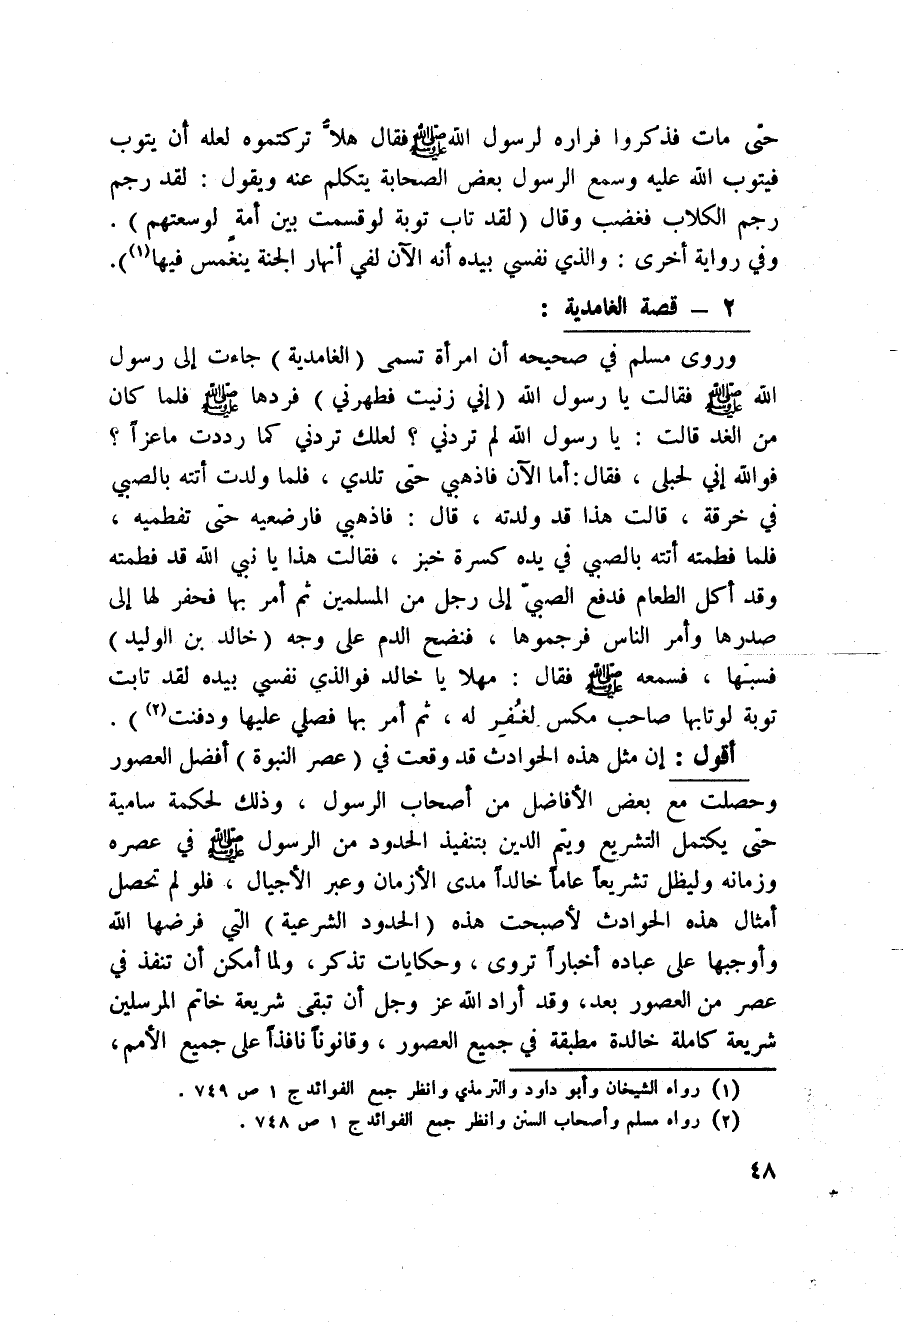 حتّى مات فذكروا فراره لرسول الله ﷺ فقال هلاّ تركتموه لعله أن يتوب
فيتوب الله عليه وسمع الرسول بعض الصحابة يتكلم عنه ويقول : لقد رجم
رجم الكلاب فغضب وقال ( لقد تاب توبة لو قسمت بين أمة لوسعتهم ) .
وفي رواية أخرى : والذي نفسي بيده أنه الآن لفي أنهار الجنة ينغمس فيها(١)).
٢ — قصة الغامدية :
وروى مسلم في صحيحه أن امرأة تسمى ( الغامدية ) جاءت إلى رسول
الله ﷺ فقالت يا رسول الله ( إني زنيت فطهرني ) فردها ﷺ فلما كان
من الغد قالت : يا رسول الله لم تردني ؟ لعلك تردني كما رددت ماعزاً ؟
فوالله إني لحبلى ، فقال : أما الآن فاذهبي حتّى تلدي ، فلما ولدت أتته بالصبي
في خرقة ، قالت هذا قد ولدته ، قال : فاذهبي فارضعيه حتّى تفطميه ،
فلما فطمته أتته بالصبي في يده كسرة خبز ، فقالت هذا يا نبي الله قد فطمته
وقد أكل الطعام فدفع الصبيّ إلى رجل من المسلمين ثم أمر بها فحفر لها إلى
صدرها وأمر الناس فرجموها ، فنضح الدم على وجه ( خالد بن الوليد )
فسبّها ، فسمعه ﷺ فقال : مهلا يا خالد فوالذي نفسي بيده لقد تابت
توبة لو تابها صاحب مكس لغُفِر له ، ثم أمر بها فصلي عليها ودفنت(٢) ) .
أقول : إن مثل هذه الحوادث قد وقعت في ( عصر النبوة ) أفضل العصور
وحصلت مع بعض الأفاضل من أصحاب الرسول ، وذلك لحكمة سامية
حتّى يكتمل التشريع ويتم الدين بتنفيذ الحدود من الرسول ﷺ في عصره
وزمانه وليظل تشريعاً عاماً خالداً مدى الأزمان وعبر الأجيال ، فلو لم تحصل
أمثال هذه الحوادث لأصبحت هذه ( الحدود الشرعية ) الّتي فرضها الله
وأوجبها على عباده أخباراً تروى ، وحكايات تذكر ، ولما أمكن أن تنفذ في
عصر من العصور بعد، وقد أراد الله عز وجل أن تبقى شريعة خاتم المرسلين
شريعة كاملة خالدة مطبقة في جميع العصور ، وقانوناً نافذاً على جميع الأمم،
(١) رواه الشيخان وأبو داود والترمذي وانظر جمع الفوائد ج ١ ص ٧٤٩ .
(٢) رواه مسلم وأصحاب السنن وانظر جمع الفوائد ج ١ ص ٧٤٨ .
٤٨